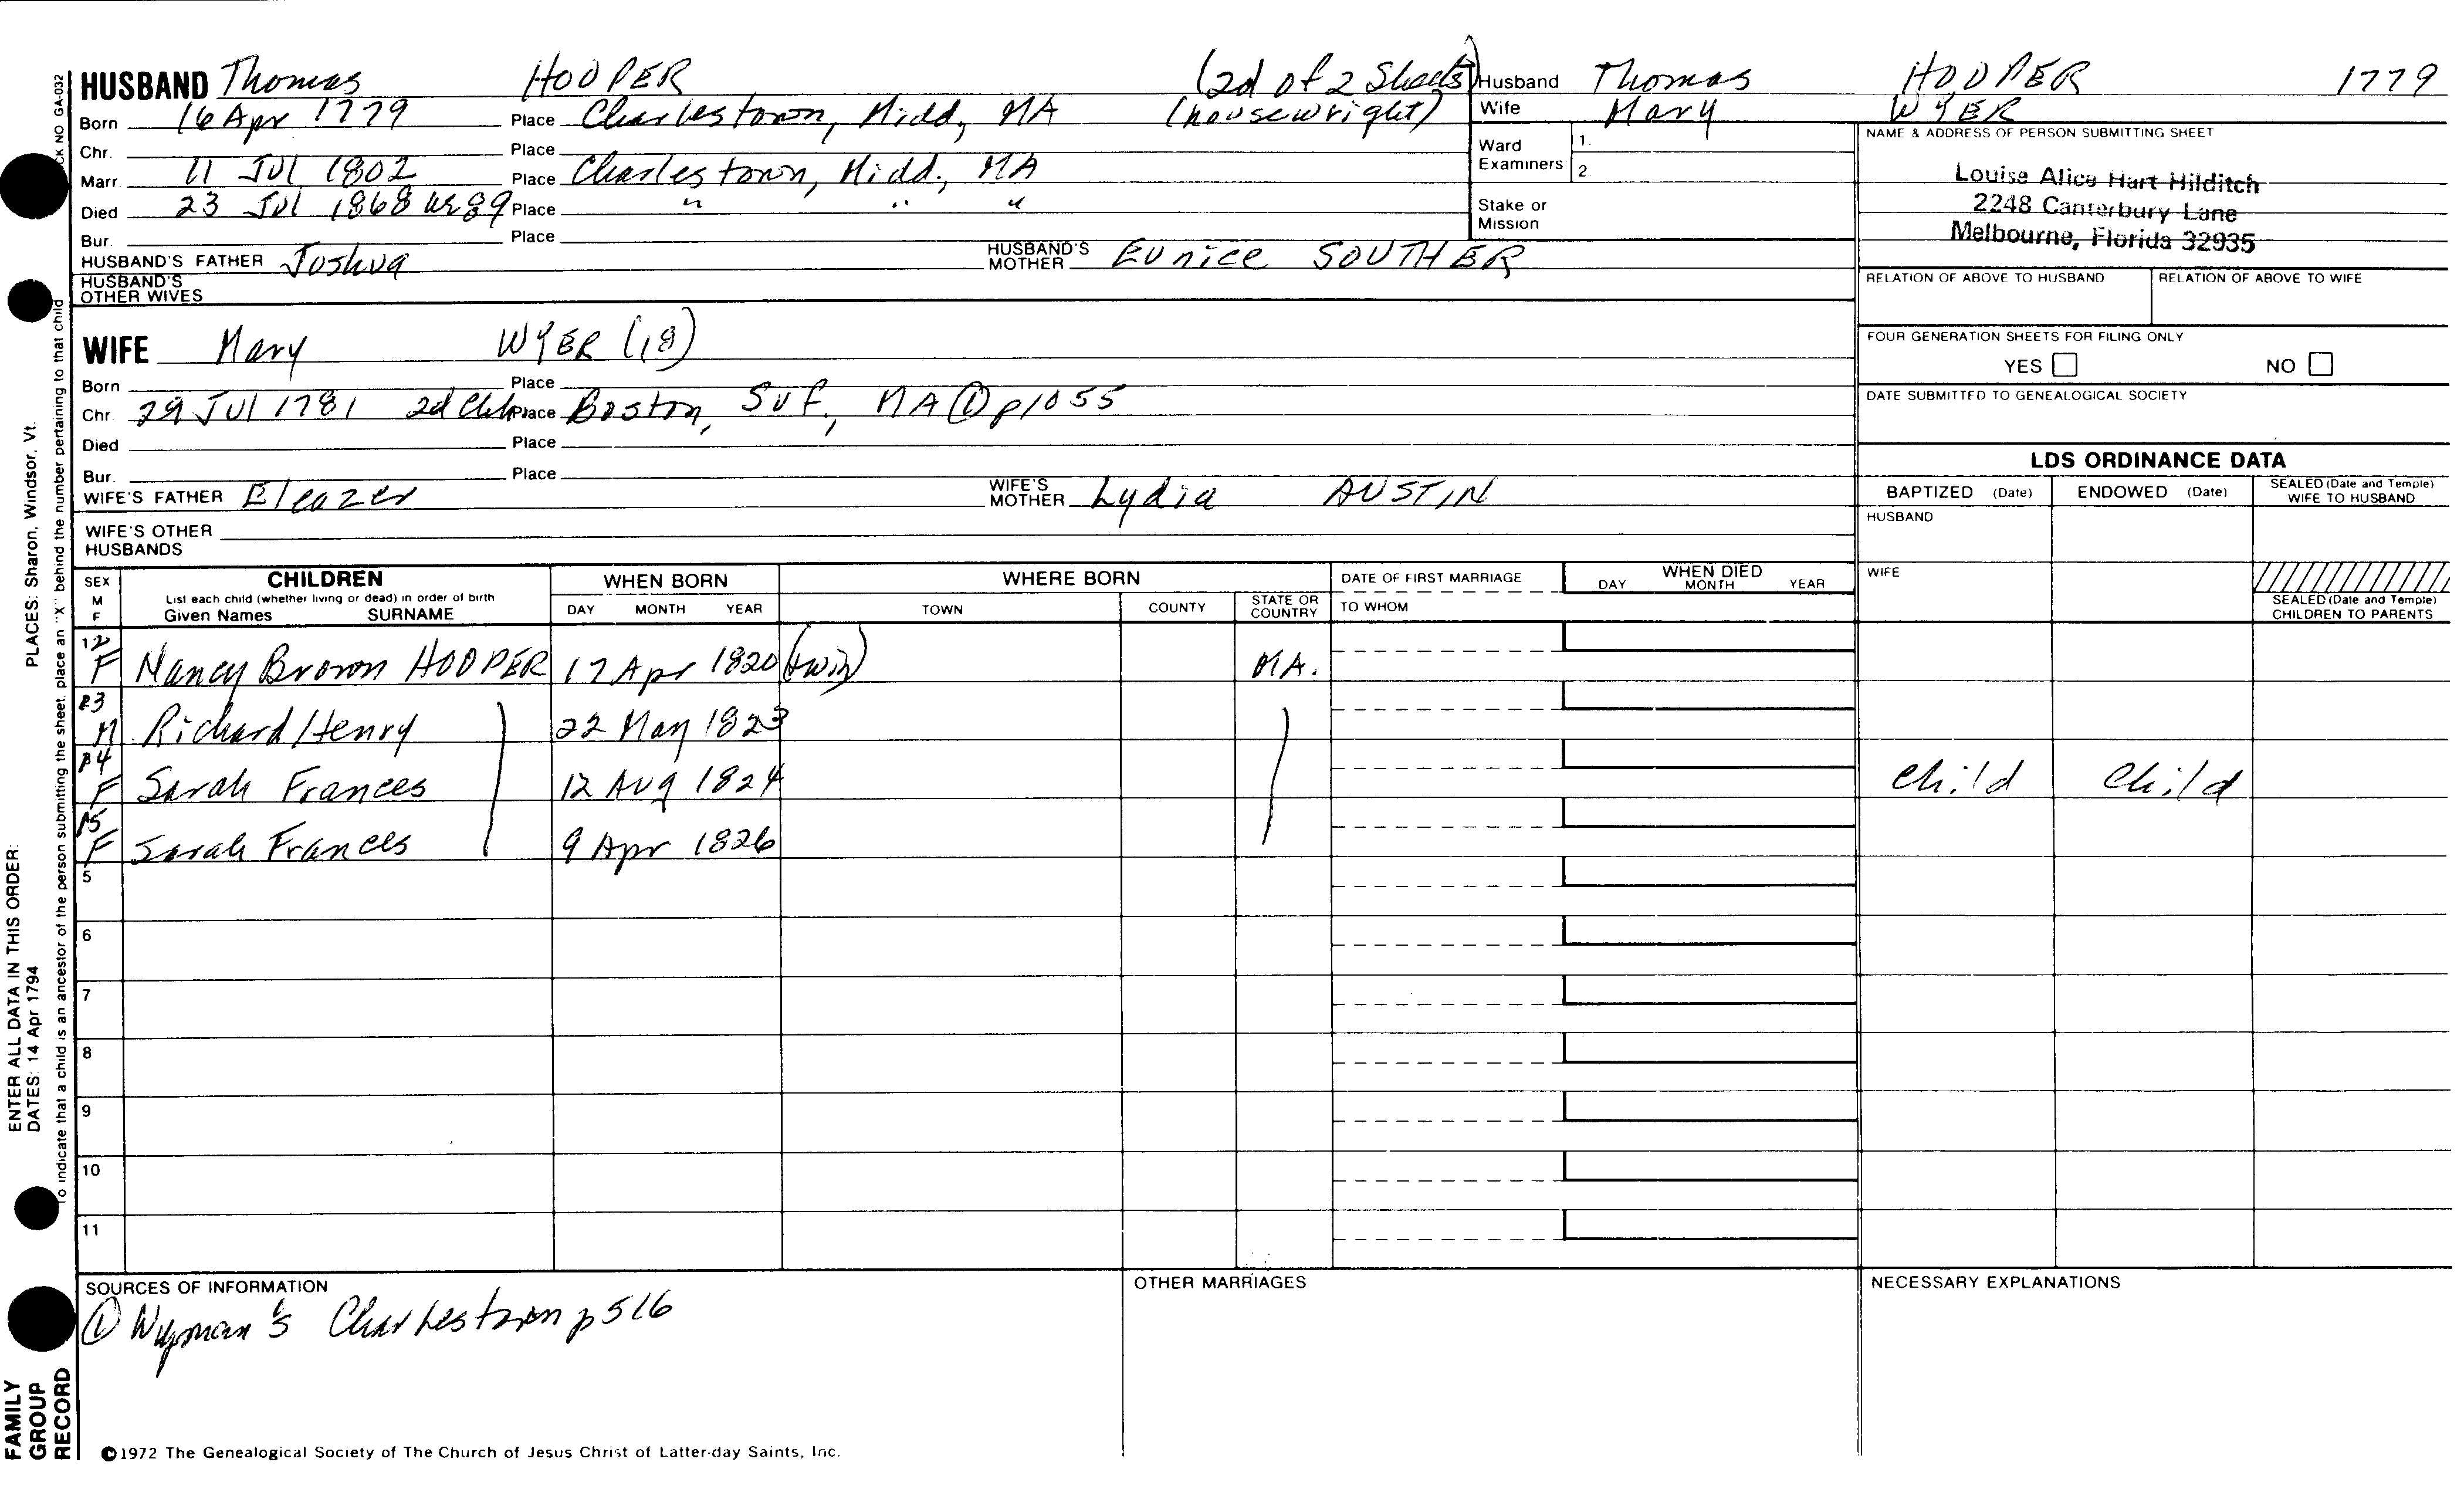 HUSBAND Thomas HOOPER (2d of 2 Sheets)
Born 16 Apr 1779 Place Charlestown, Midd, MA (housewright)
Chr. Place
Marr. 11 Jul 1802 Place Charlestown, Midd., MA
Died 23 Jul 1868 ae 89 Place " " "
Bur. Place
HUSBAND'S FATHER Joshua HUSBAND'S MOTHER Eunice SOUTHER
HUSBAND'S OTHER WIVES
WIFE Mary WYER (18)
Born Place
Chr. 29 Jul 1781 2d Chh Place Boston, Suf., MA ① p1055
Died Place
Bur. Place
WIFE'S FATHER Eleazer WIFE'S MOTHER Lydia AUSTIN
WIFE'S OTHER HUSBANDS
Husband Thomas HOOPER 1779
Wife Mary WYER
Ward Examiners 1.
2
Stake or Mission
NAME & ADDRESS OF PERSON SUBMITTING SHEET
Louise Alice Hart Hilditch
2248 Canterbury Lane
Melbourne, Florida 32935
RELATION OF ABOVE TO HUSBAND RELATION OF ABOVE TO WIFE
FOUR GENERATION SHEETS FOR FILING ONLY
YES NO
DATE SUBMITTED TO GENEALOGICAL SOCIETY
LDS ORDINANCE DATA
BAPTIZED (Date) ENDOWED (Date) SEALED (Date and Temple) WIFE TO HUSBAND
HUSBAND
WIFE
SEALED (Date and Temple) CHILDREN TO PARENTS
SEX M F
CHILDREN
List each child (whether living or dead) in order of birth
Given Names SURNAME
WHEN BORN
DAY MONTH YEAR
WHERE BORN
TOWN COUNTY STATE OR COUNTRY
DATE OF FIRST MARRIAGE
TO WHOM
WHEN DIED
DAY MONTH YEAR
12 F Nancy Brown HOOPER 17 Apr 1820 (twin) MA.
13 M Richard Henry 22 May 1823
14 F Sarah Frances 12 Aug 1824 Child Child
15 F Sarah Frances 9 Apr 1826
5
6
7
8
9
10
11
SOURCES OF INFORMATION
① Wyman's Charlestown p 516
OTHER MARRIAGES
NECESSARY EXPLANATIONS
©1972 The Genealogical Society of The Church of Jesus Christ of Latter-day Saints, Inc.
FAMILY GROUP RECORD
ENTER ALL DATA IN THIS ORDER:
DATES: 14 Apr 1794
PLACES: Sharon, Windsor, Vt.
To indicate that a child is an ancestor of the person submitting the sheet, place an "X" behind the number pertaining to that child
CK NO GA-032